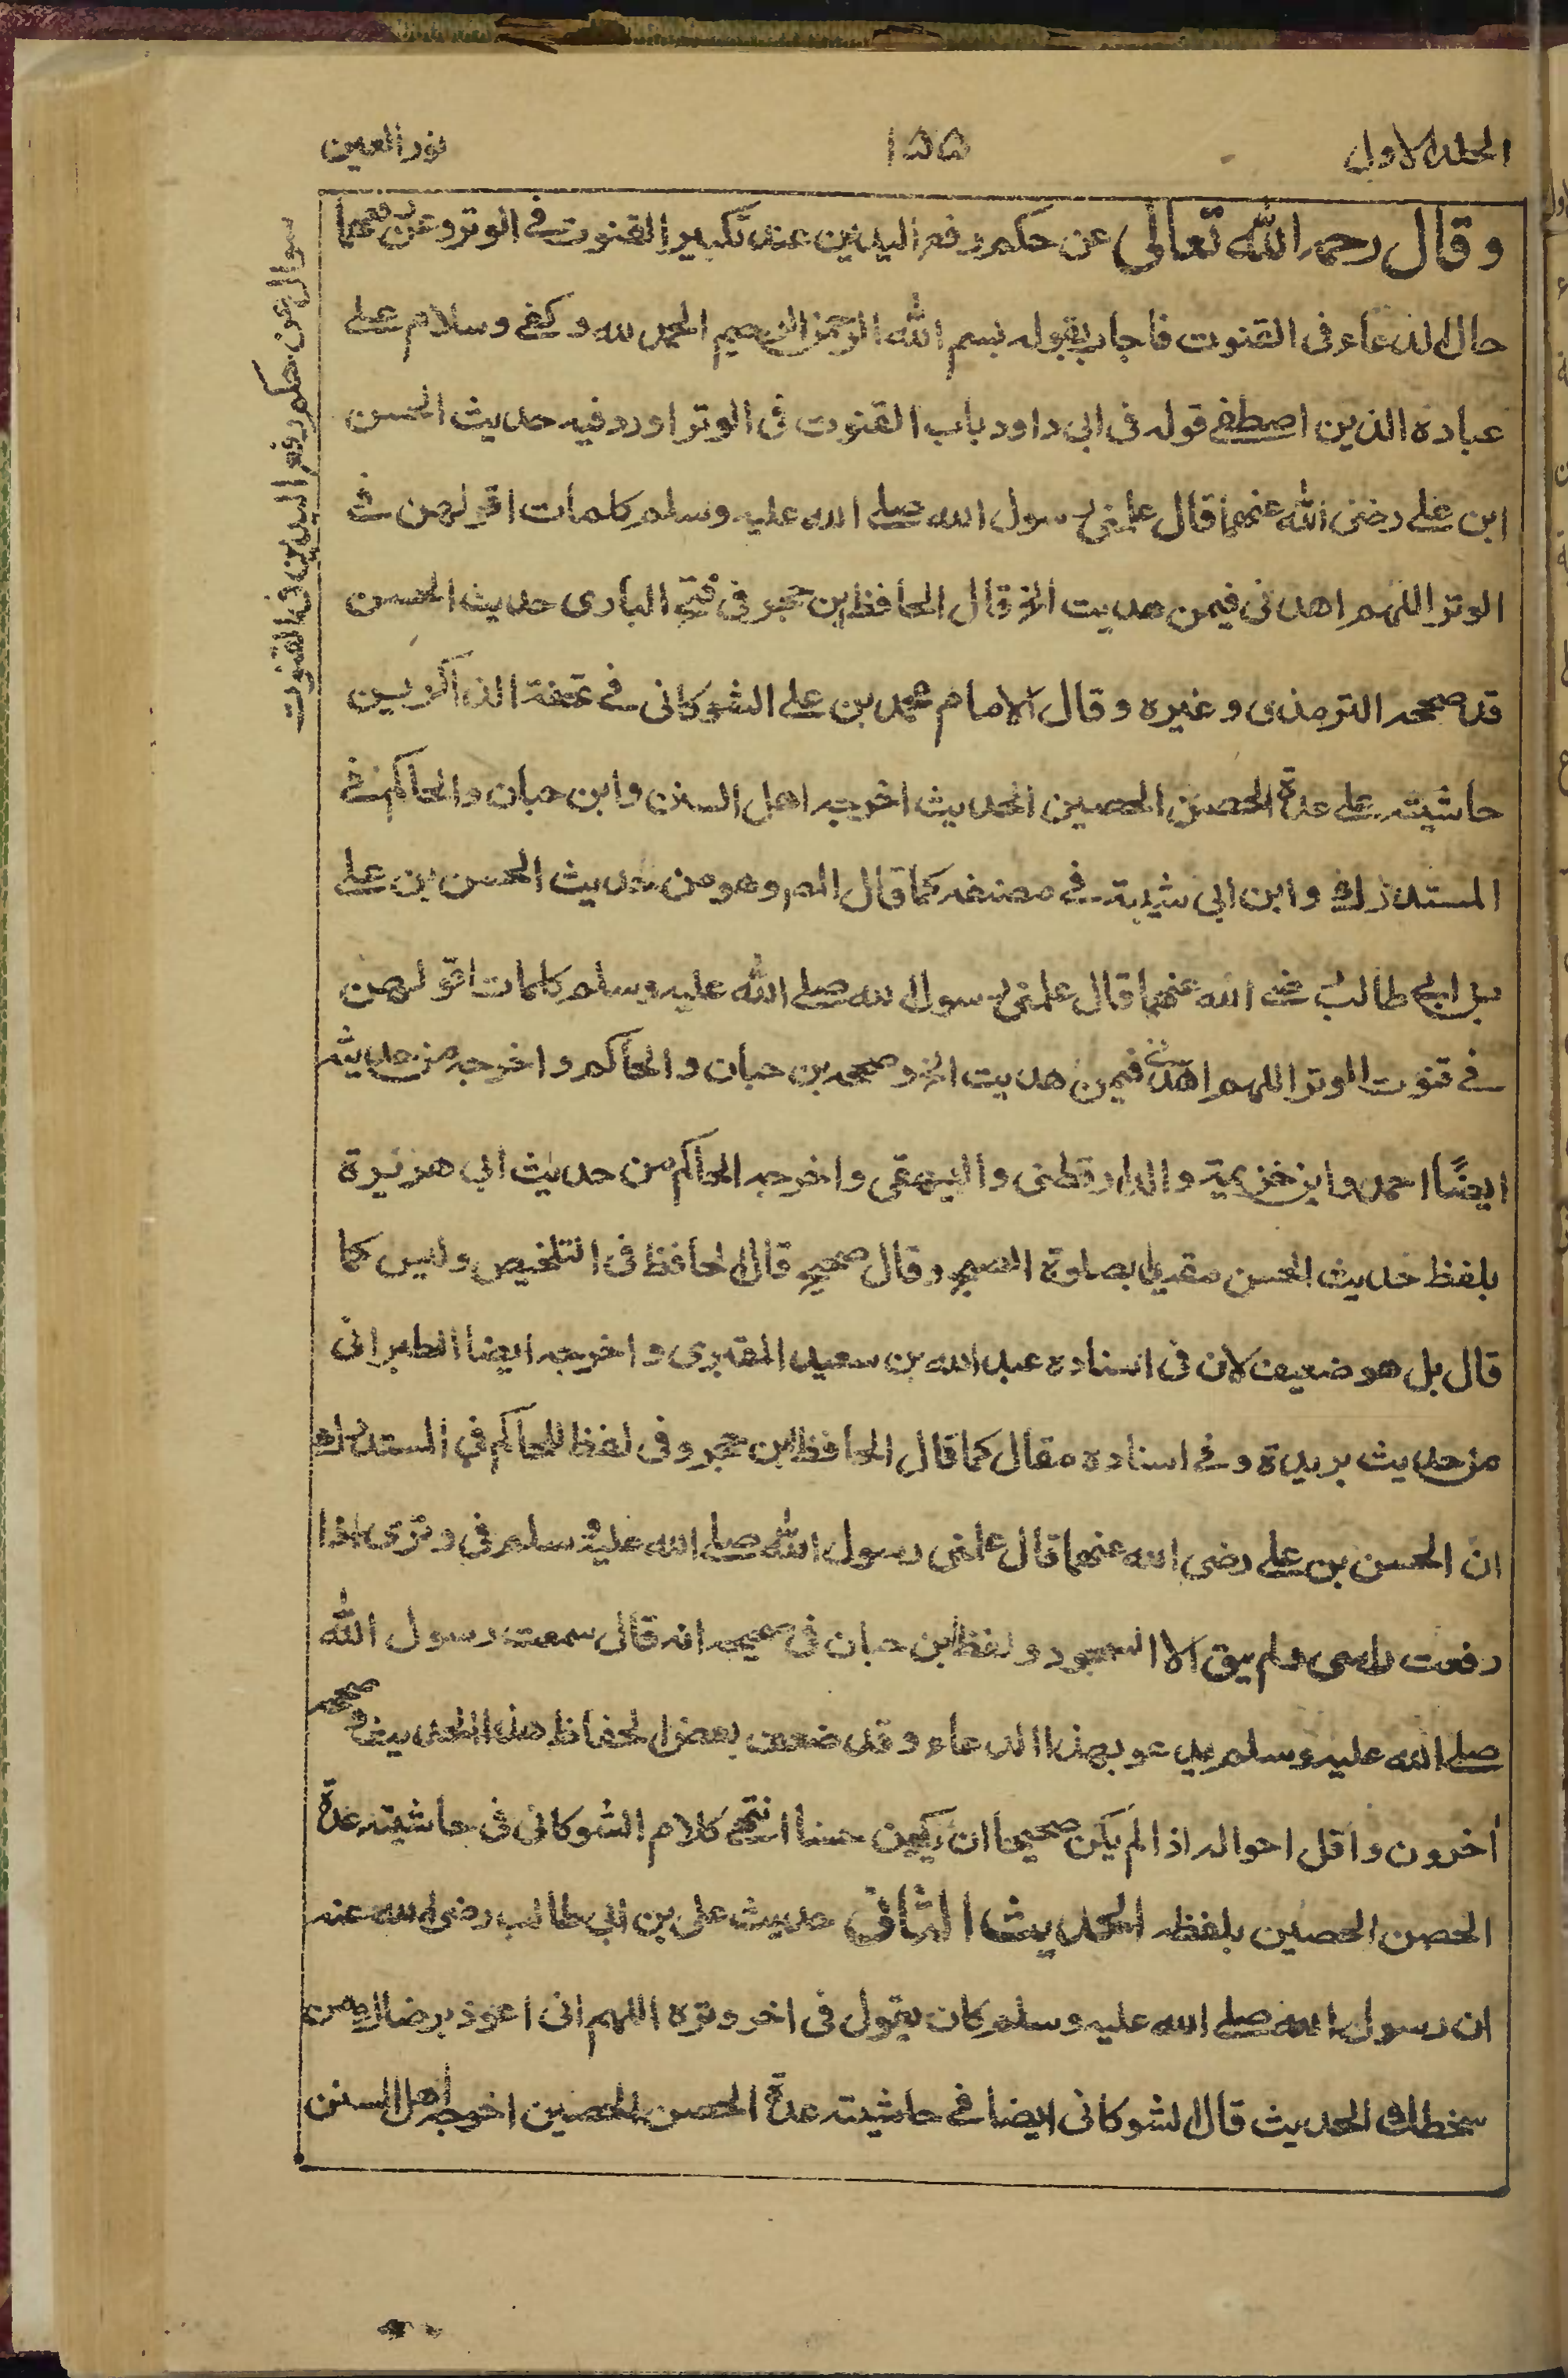 المجلد الاول ١٥٥ نور العين
سوال عن حكم رفع اليدين فى القنوت
وقال رحمه الله تعالى عن حكم رفع اليدين عند تكبير القنوت فى الوتر وعن رفعهما
حال الدعاء فى القنوت فاجاب بقوله بسم الله الرحمن الرحيم الحمد لله وكفى وسلام على
عباده الذين اصطفى قوله فى ابى داود باب القنوت فى الوتر اورد فيه حديث الحسن
ابن على رضى الله عنهما قال علمنى رسول الله صلى الله عليه وسلم كلمات اقولهن فى
الوتر اللهم اهدنى فيمن هديت الخ قال الحافظ ابن حجر فى فتح البارى حديث الحسن
قد صححه الترمذى وغيره وقال الامام محمد بن على الشوكانى فى تحفة الذاكرين
حاشيته على عدة الحصن الحصين الحديث اخرجه اهل السنن وابن حبان والحاكم فى
المستدرك وابن ابى شيبة فى مصنفه كما قال المصر وهو من حديث الحسن بن على
بن ابى طالب رضى الله عنهما قال علمنى رسول الله صلى الله عليه وسلم كلمات اقولهن
فى قنوت الوتر اللهم اهدنى فيمن هديت الخ وصححه بن حبان والحاكم واخرجه من حديثه
ايضًا احمد وابن خزيمة والدارقطنى والبيهقى واخرجه الحاكم من حديث ابى هريرة
بلفظ حديث الحسن مقديا بصلوة الصبح وقال صحيح قال الحافظ فى التلخيص وليس كما
قال بل هو ضعيف لان فى اسناده عبد الله بن سعيد المقبرى واخرجه ايضا الطبرانى
من حديث بريدة وفى اسناده مقال كما قال الحافظ ابن حجر وفى لفظ للحاكم فى المستدرك
ان الحسن بن على رضى الله عنهما قال علمنى رسول الله صلى الله عليه وسلم فى وترى اذا
رفعت راسى ولم يبق الا السجود ولفظ ابن حبان فى صحيحه انه قال سمعت رسول الله
صلى الله عليه وسلم يدعو بهذا الدعاء وقد ضعف بعض الحفاظ هذا الحديث وصححه
أخرون واقل احواله اذا لم يكن صحيحا ان يكون حسنا انتهى كلام الشوكانى فى حاشيته عدة
الحصن الحصين بلفظه الحديث الثانى حديث على بن ابى طالب رضى الله عنه
ان رسول الله صلى الله عليه وسلم كان يقول فى اخر وتره اللهم انى اعوذ برضاك من
سخطك الحديث قال الشوكانى ايضا فى حاشيته عدة الحصن الحصين اخرجه اهل السنن